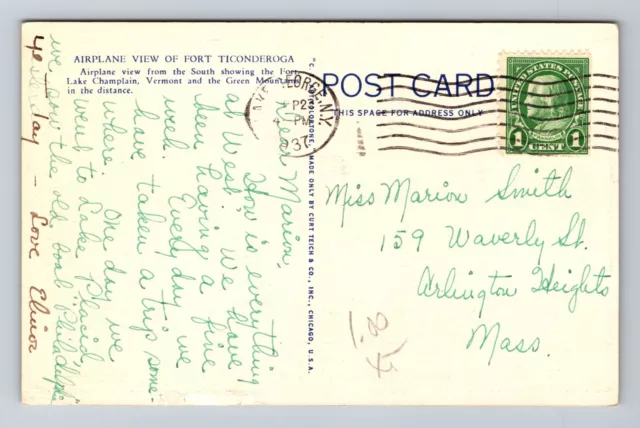 AIRPLANE VIEW OF FORT TICONDEROGA
Airplane view from the South showing the Fort,
Lake Champlain, Vermont and the Green Mountains
in the distance.
Dear Marion,
How is everything
at West? We have
been having a fine
week. Every day we
have taken a trip some-
where. One day we
went to Lake Placid
the old boat "Philadelphia"
day — Love Elinor
"C.T. PHOTO-COLORIT", MADE ONLY BY CURT TEICH & CO., INC., CHICAGO, U.S.A.
LAKE GEORGE, N.Y.
4 PM
1937
POST CARD
THIS SPACE FOR ADDRESS ONLY
UNITED STATES POSTAGE
1 CENT 1
Miss Marion Smith
159 Waverly St.
Arlington Heights
Mass.